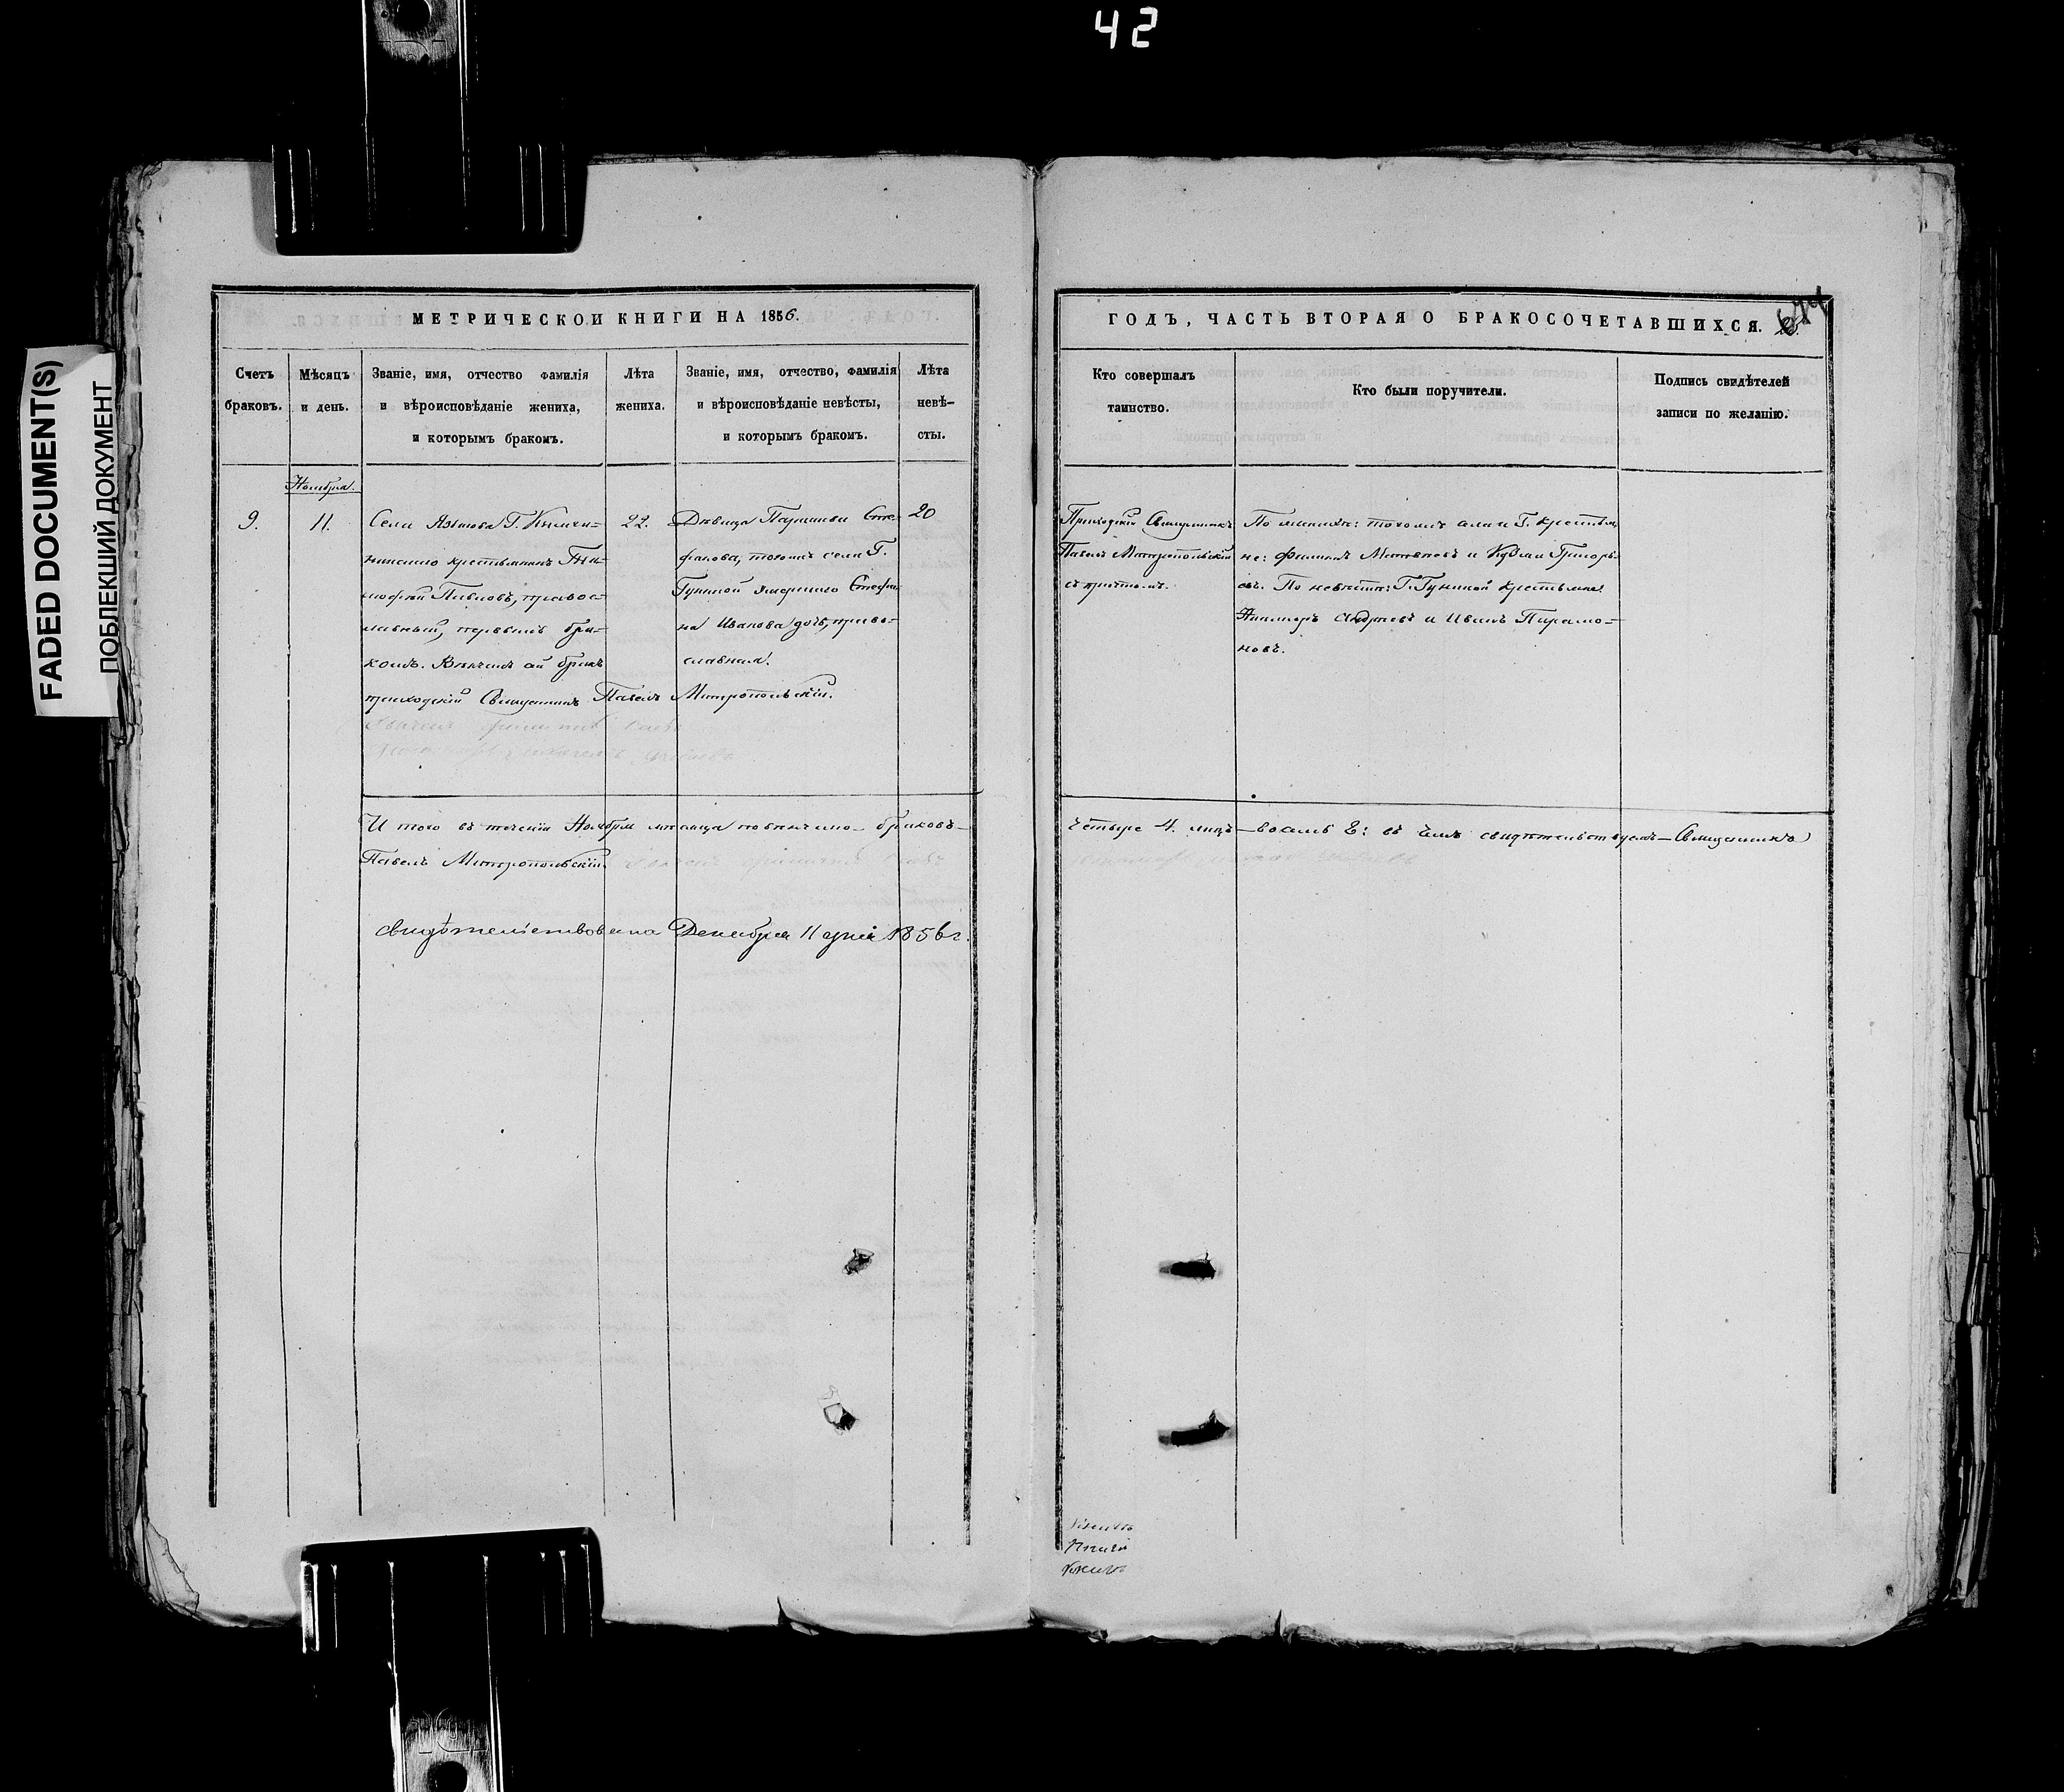 42
FADED DOCUMENT(S)
ПОБЛЕКШИЙ ДОКУМЕНТ
МЕТРИЧЕСКОЙ КНИГИ НА 1856.
Счетъ браковъ.
Мѣсяцъ и день.
Званіе, имя, отчество фамилія
и вѣроисповѣданіе жениха,
и которымъ бракомъ.
Лѣта жениха.
Званіе, имя, отчество, фамилія
и вѣроисповѣданіе невѣсты,
и которымъ бракомъ.
Лѣта невѣ-
сты.
Ноября.
9.
11.
Села Языкова Г.
крестьянинъ Ти-
мофей Павловъ, правос-
лавный, первымъ бра-
комъ. Вѣнчалъ сей бракъ
приходскій Священникъ Павелъ Митропольскій.
22.
Дѣвица Стѣ-
фанова, тогожъ села Г.
умершаго Стефа-
на Иванова дочь, право-
славная.
20
И того въ теченіи Ноября мѣсяца повѣнчано браковъ
Павелъ Митропольскій.
Свидѣтельствована Декабря 11 дня 1856 г.
ГОДЪ, ЧАСТЬ ВТОРАЯ О БРАКОСОЧЕТАВШИХСЯ.
Кто совершалъ
таинство.
Кто были поручители.
Подпись свидѣтелей
записи по желанію.
Приходскій Священникъ
Павелъ Митропольскій
съ причтомъ.
По женихѣ: тогожъ села Г. крестья
не: Филипъ Матвѣевъ и Кузма Григорь-
евъ. По невѣстѣ: Г. крестьяне
Андреевъ и Иванъ Парамо-
новъ.
четыре 4. лицъ восемь 8: въ чемъ свидѣтельствуемъ Священникъ